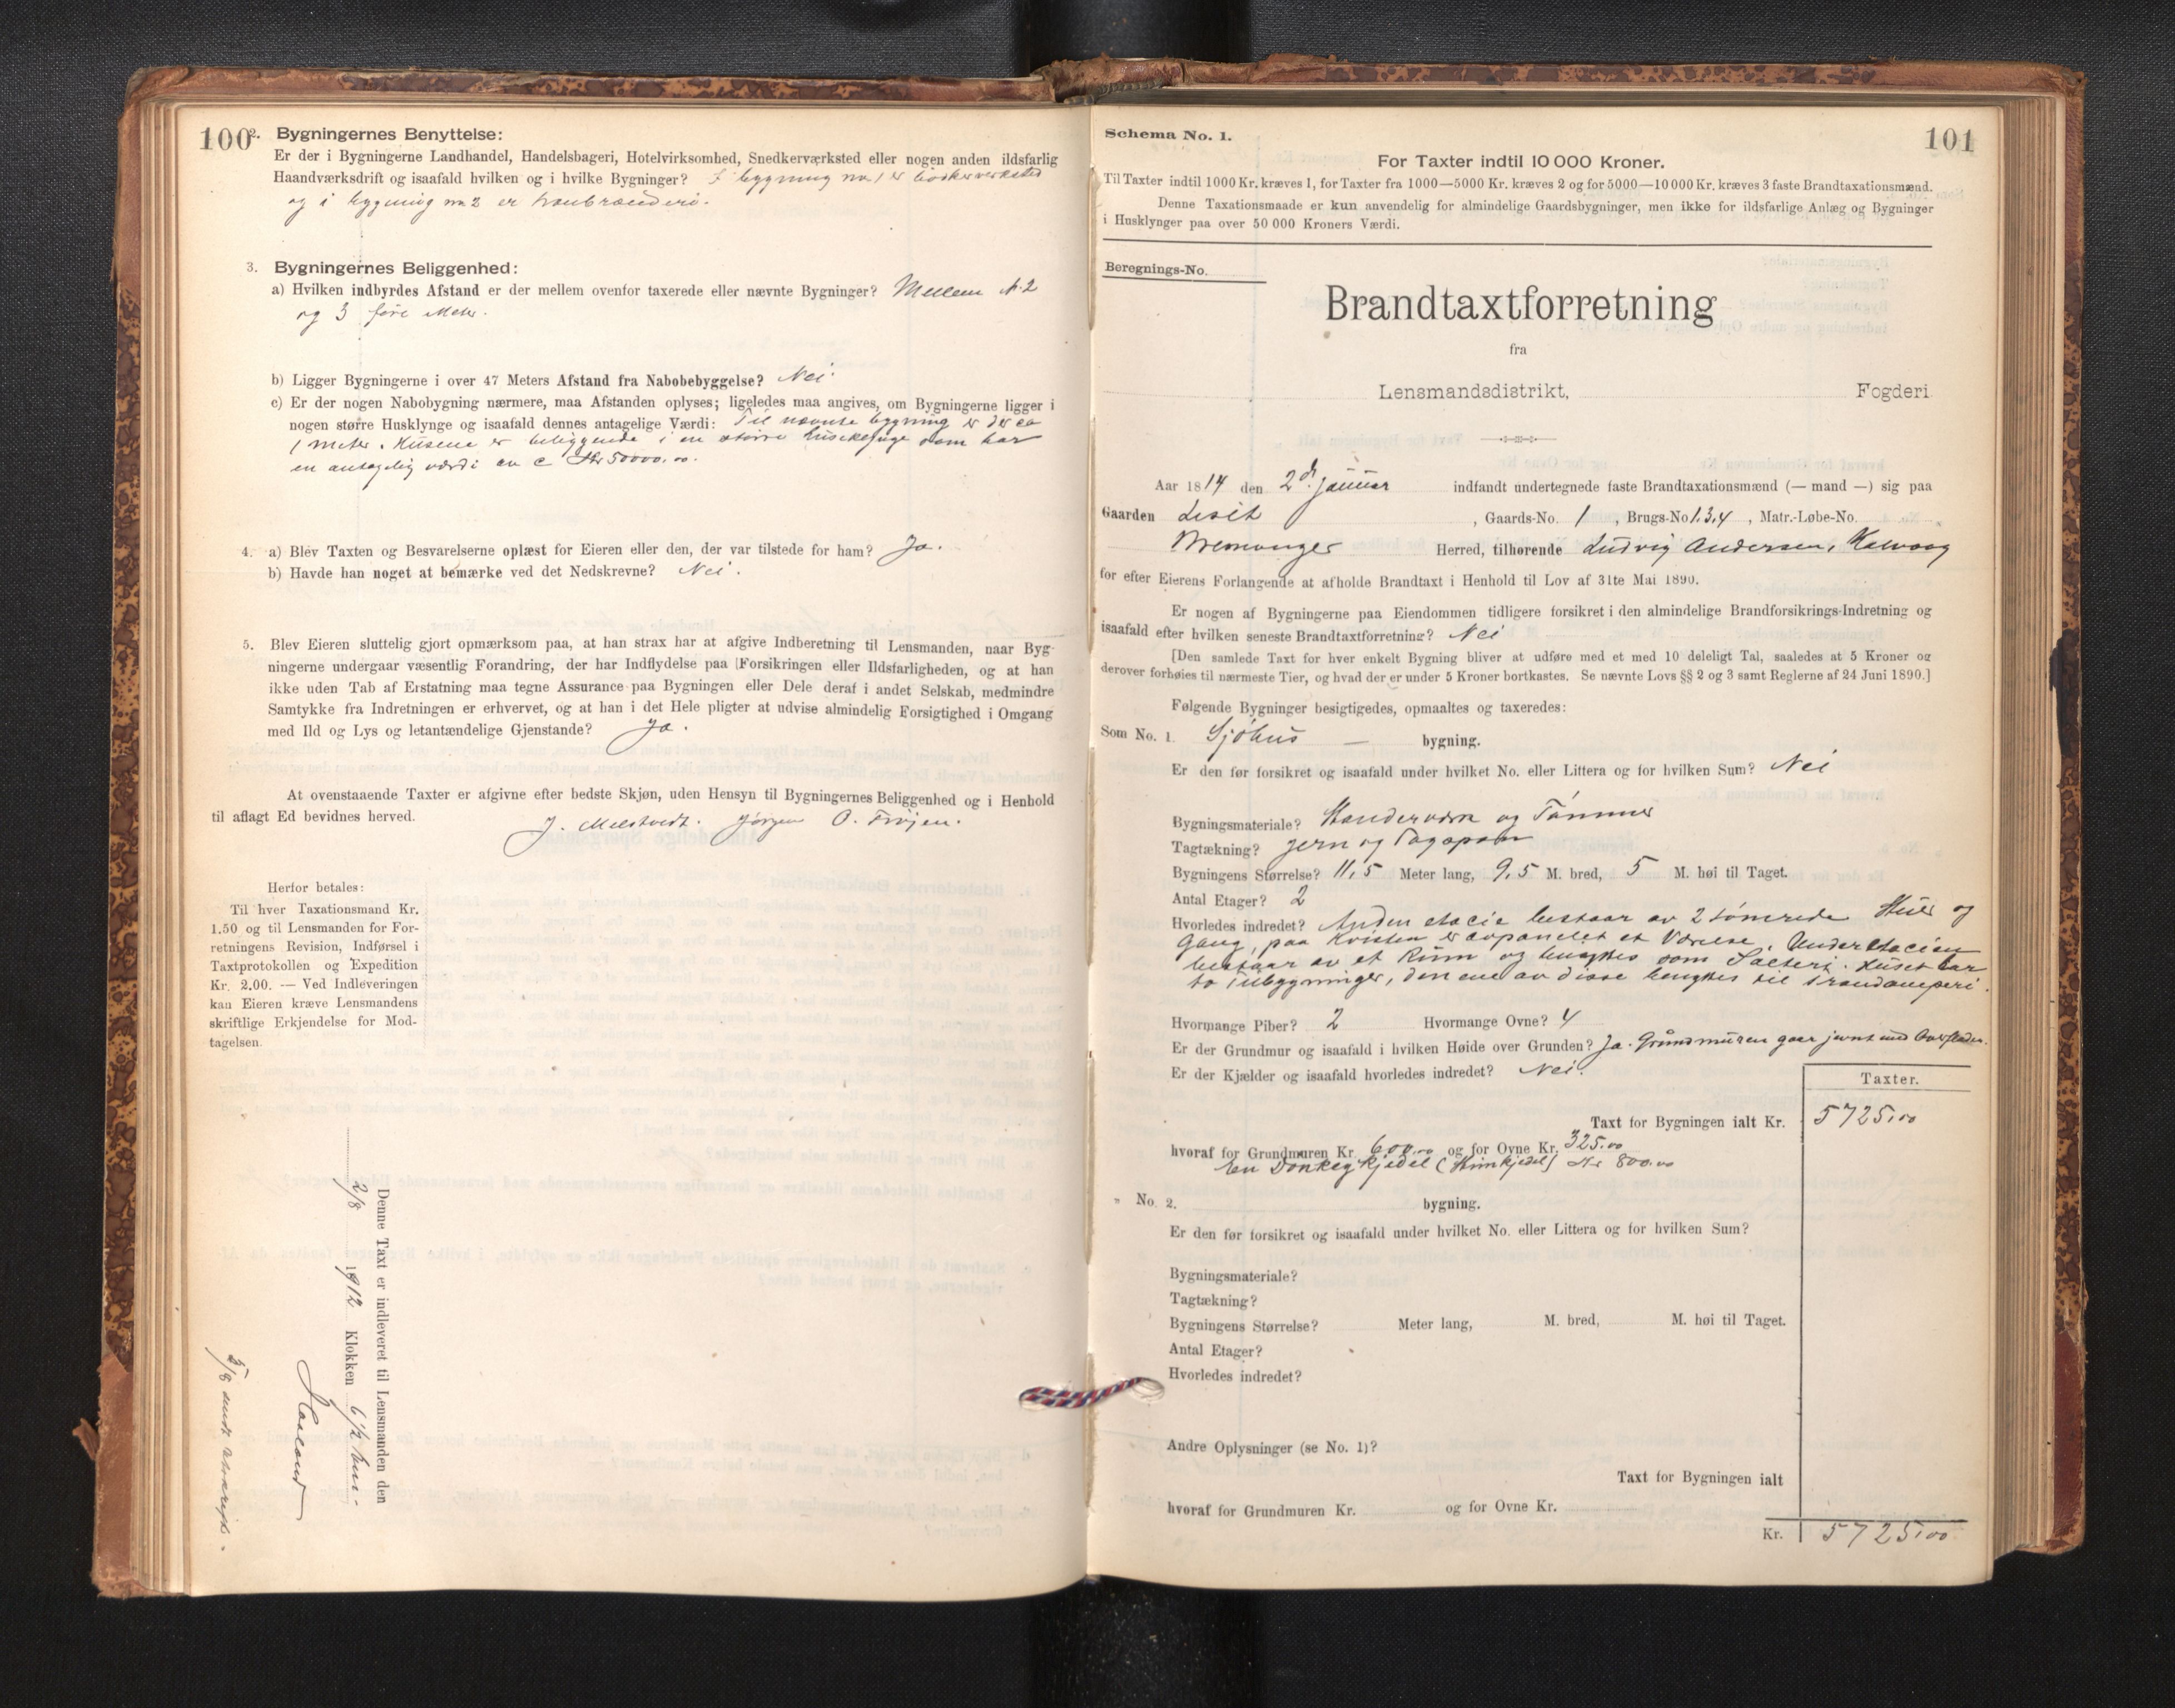 100
2. Bygningernes Benyttelse:
Er der i Bygningerne Landhandel, Handelsbageri, Hotelvirksomhed, Snedkerværksted eller nogen anden ildsfarlig
Haandværksdrift og isaafald hvilken og i hvilke Bygninger? I bygning no 1 er bödkerverksted
og i bygning no 2 er tranbrænderi.
3. Bygningernes Beliggenhed:
a) Hvilken indbyrdes Afstand er der mellem ovenfor taxerede eller nævnte Bygninger? Mellem N. 2
og 3 fire Meter.
b) Ligger Bygningerne i over 47 Meters Afstand fra Nabobebyggelse? Nei.
c) Er der nogen Nabobygning nærmere, maa Afstanden oplyses; ligeledes maa angives, om Bygningerne ligger i
nogen større Husklynge og isaafald dennes antagelige Værdi: Til nævnte bygning er der ca
1 meter. Husene er beliggende i en større huseklynge som har
en antagelig værdi av c Kr 50000.00.
4. a) Blev Taxten og Besvarelserne oplæst for Eieren eller den, der var tilstede for ham? Ja.
b) Havde han noget at bemærke ved det Nedskrevne? Nei.
5. Blev Eieren sluttelig gjort opmærksom paa, at han strax har at afgive Indberetning til Lensmanden, naar Byg-
ningerne undergaar væsentlig Forandring, der har Indflydelse paa Forsikringen eller Ildsfarligheden, og at han
ikke uden Tab af Erstatning maa tegne Assurance paa Bygningen eller Dele deraf i andet Selskab, medmindre
Samtykke fra Indretningen er erhvervet, og at han i det Hele pligter at udvise almindelig Forsigtighed i Omgang
med Ild og Lys og letantændelige Gjenstande? Ja.
At ovenstaaende Taxter er afgivne efter bedste Skjøn, uden Hensyn til Bygningernes Beliggenhed og i Henhold
til aflagt Ed bevidnes herved.
J. Jørgen O.
Herfor betales:
Til hver Taxationsmand Kr.
1.50 og til Lensmanden for For-
retningens Revision, Indførsel i
Taxtprotokollen og Expedition
Kr. 2.00. — Ved Indleveringen
kan Eieren kræve Lensmandens
skriftlige Erkjendelse for Mod-
tagelsen.
Denne Taxt er indleveret til Lensmanden den
2/8 1912 Klokken 6 1/2
5/8
Schema No. 1.
101
For Taxter indtil 10 000 Kroner.
Til Taxter indtil 1000 Kr. kræves 1, for Taxter fra 1000—5000 Kr. kræves 2 og for 5000—10 000 Kr. kræves 3 faste Brandtaxationsmænd.
Denne Taxationsmaade er kun anvendelig for almindelige Gaardsbygninger, men ikke for ildsfarlige Anlæg og Bygninger
i Husklynger paa over 50 000 Kroners Værdi.
Beregnings-No.
Brandtaxtforretning
fra
Lensmandsdistrikt, Fogderi
Aar 1814 den 2d. januar indfandt undertegnede faste Brandtaxationsmænd (— mand —) sig paa
Gaarden Liset, Gaards-No. 1, Brugs-No 1.3.4, Matr.-Løbe-No.
Bremanger Herred, tilhørende Ludvig Andersen, Kalvaag
for efter Eierens Forlangende at afholde Brandtaxt i Henhold til Lov af 31te Mai 1890.
Er nogen af Bygningerne paa Eiendommen tidligere forsikret i den almindelige Brandforsikrings-Indretning og
isaafald efter hvilken seneste Brandtaxtforretning? Nei
[Den samlede Taxt for hver enkelt Bygning bliver at udføre med et med 10 deleligt Tal, saaledes at 5 Kroner og
derover forhøies til nærmeste Tier, og hvad der er under 5 Kroner bortkastes. Se nævnte Lovs §§ 2 og 3 samt Reglerne af 24 Juni 1890.]
Følgende Bygninger besigtigedes, opmaaltes og taxeredes:
Som No. 1. Sjöhus — bygning.
Er den før forsikret og isaafald under hvilket No. eller Littera og for hvilken Sum? Nei
Bygningsmateriale? Standerværk og Tømmer
Tagtækning? Jern og Tagspaan
Bygningens Størrelse? 11,5 Meter lang, 9,5 M. bred, 5 M. høi til Taget.
Antal Etager? 2
Hvorledes indredet? Anden etacie bestaar av 2 tömrede Stuer og
Gang, paa Kvisten er avpanelet et Værelse. Underetacien
bestaar av et Rum og benyttes som Salteri. Huset har
to Tilbygninger, den ene av disse benyttes til Trandamperi.
Hvormange Piber? 2 Hvormange Ovne? 4
Er der Grundmur og isaafald i hvilken Høide over Grunden? Ja. Grundmuren gaar jevnt med Overfladen.
Er der Kjælder og isaafald hvorledes indredet? Nei.
Taxter.
Taxt for Bygningen ialt Kr. 5725.00
hvoraf for Grundmuren Kr. 600.00 og for Ovne Kr. 325.00
En Donkeykjedel (Stimkjedel) Kr 800.00
" No. 2. bygning.
Er den før forsikret og isaafald under hvilket No. eller Littera og for hvilken Sum?
Bygningsmateriale?
Tagtækning?
Bygningens Størrelse? Meter lang, M. bred, M. høi til Taget.
Antal Etager?
Hvorledes indredet?
Andre Oplysninger (se No. 1)?
Taxt for Bygningen ialt
hvoraf for Grundmuren Kr. og for Ovne Kr.
Kr. 5725.00